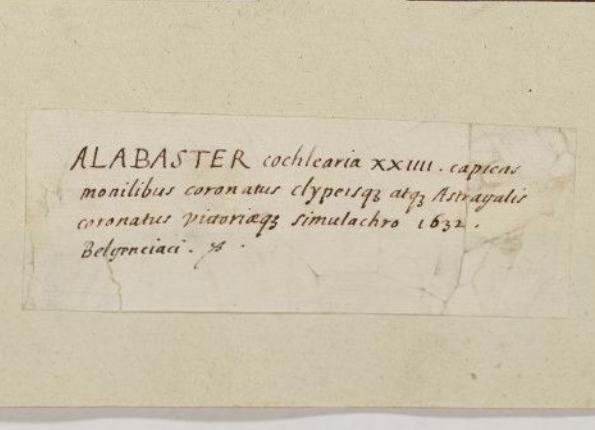 ALABASTER cochlearia XXIIII. capiens
monilibus coronatus clypeisqꝫ atqꝫ Astragalis
coronatus victoriæqꝫ simulachro 1632.
Belgenciaci.